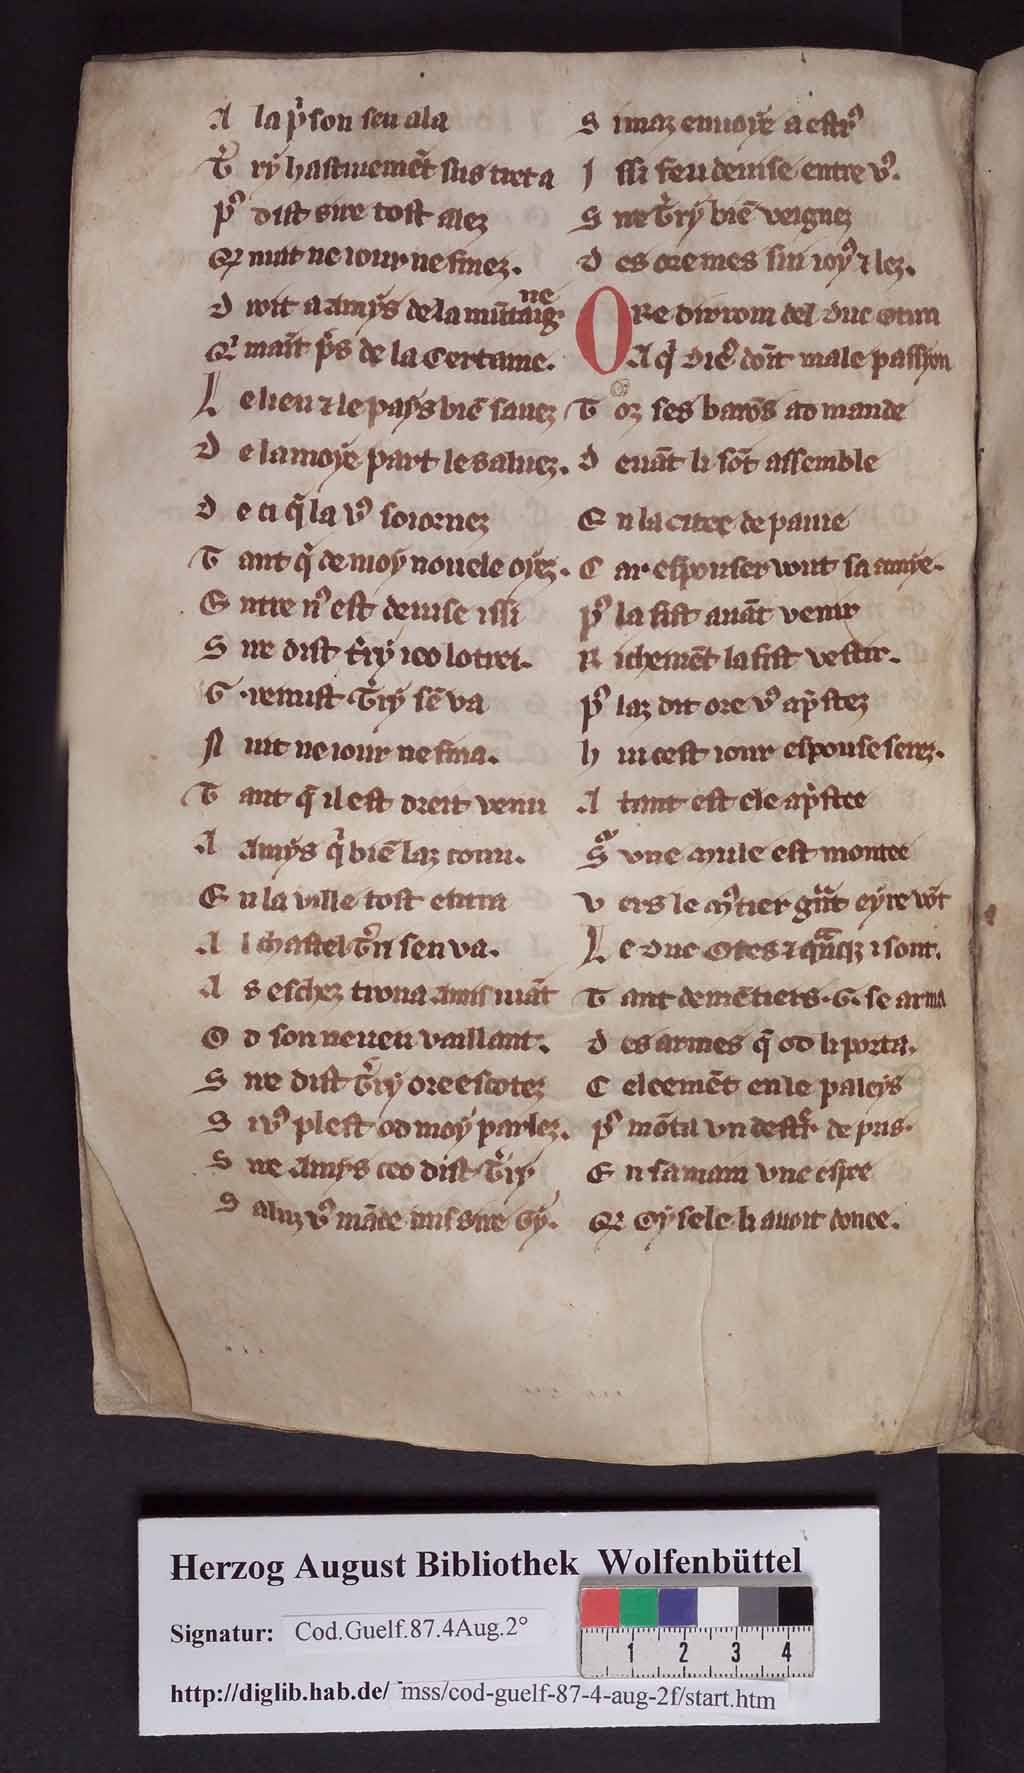 A la p'son seu ala
T'ry hastiuemēt sus tret a
P' dist sire tost alez
Q nuit ne iour ne finez.
D roit a amys de la mūtaigne
Q maīt p's de la Certeine.
L e lieu ⁊ le pays biē sauez
D e la moye part le saluez.
D e ci q' la v' soiornez
T ant q' de moy nouele oyez.
E ntre n' est deuise issi
S ire dist t'ry ieo lotrei.
G. remist T'ry sē va
N uit ne iour ne fina.
T ant q' il est dreit venu
A Amys q' biē laz conu.
E n la ville tost entra
A l chastel t'ri sen va.
A s eschez trova amis iuāt
O d son neueu vaillant.
S ire dist T'ry ore escotez
S i v' plest od moy parlez.
S ire Amys ceo dist T'ry
S aluz v' māde mis sire Gy.
S i maz enuoye a estr'
I ssi feu deuise entre v'.
S ire T'ry biē veignez
D es ore mes sui ioy' ⁊ lez.
O Re dirrom del duc Otun
A q' die' doīt male passion
T oz ses barōs ad mande
D euāt li sōt assemble
E n la citee de pauie
C ar espouser vout sa amye.
P' la fist auāt venir
R ichemēt la fist vestir.
P' laz dit ore v' ap'stez
h ui cest iour espouse serez.
A tant est ele ap'stee
S' vne mule est montee
V ers le m'tier g'nt eyre vōt
L e duc Otes ⁊ q'nq'z i sont.
T ant demētiers .G. se arma
D es armes q' od li porta.
C eleemēt en le paleys
P' mōta vn destr' de pris.
E n sa main vne espee
Q Oysele li auoit donee.
Herzog August Bibliothek Wolfenbüttel
Signatur: Cod.Guelf.87.4Aug.2°
1 2 3 4
http://diglib.hab.de/ mss/cod-guelf-87-4-aug-2f/start.htm